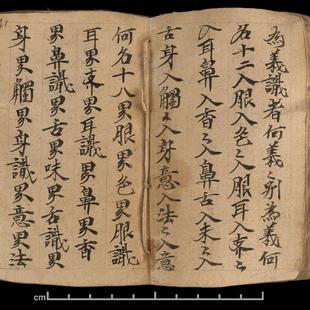 為義識者何義〻別為義何
名十二入眼入色〻入眼耳入声〻
入耳鼻入香〻入鼻舌入未〻入
舌身入觸〻入身意入法〻入意
何名十八界眼界色界眼識
耳界声界耳識界鼻界香
界鼻識界舌界味界舌識界
身界觸界身識界意界法
cm